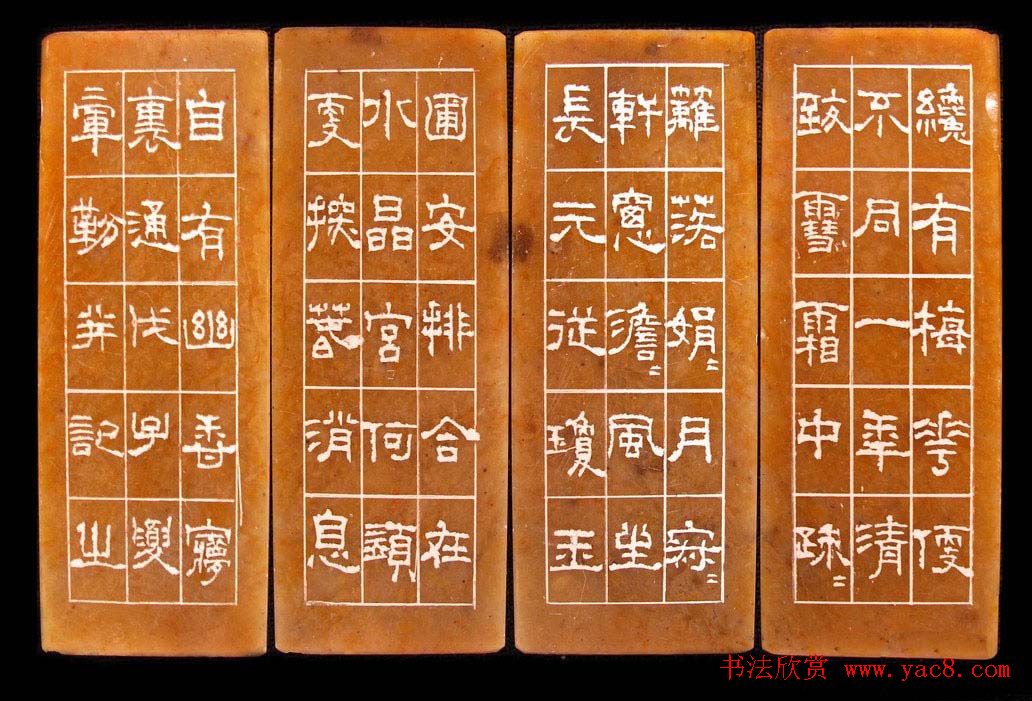 纔有梅花便
不同一年清
致雪霜中疎〻
籬落娟〻月寂〻
軒窗澹〻風生
長元從瓊玉
圃安排合在
水晶宮何須
更探萅消息
自有幽香夢
裏通戊子夏
勒并記之
书法欣赏 www.yac8.com